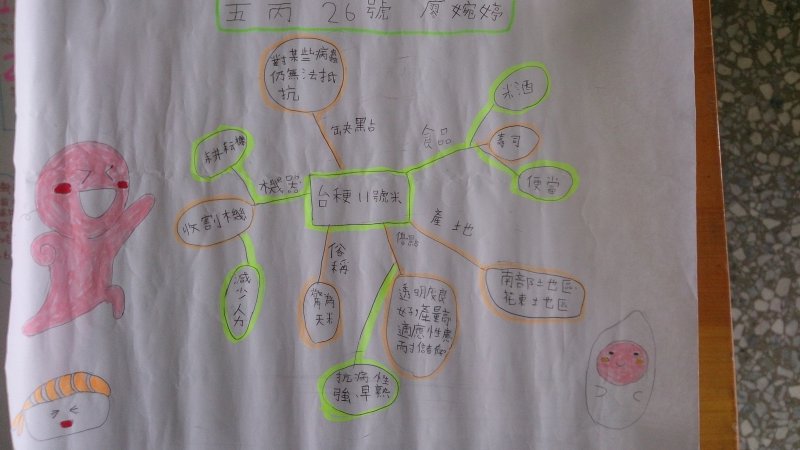 五丙 26號 廖婉婷
對某些病蟲
仍無法抵
抗
缺點
食品
米酒
壽司
便當
耕耘機
機器
收割機
減少人力
台稉11號米
產地
南部土地區
花東土地區
俗稱
優點
透明度良
好產量高
適應性廣
耐儲
抗病性
強、早熟